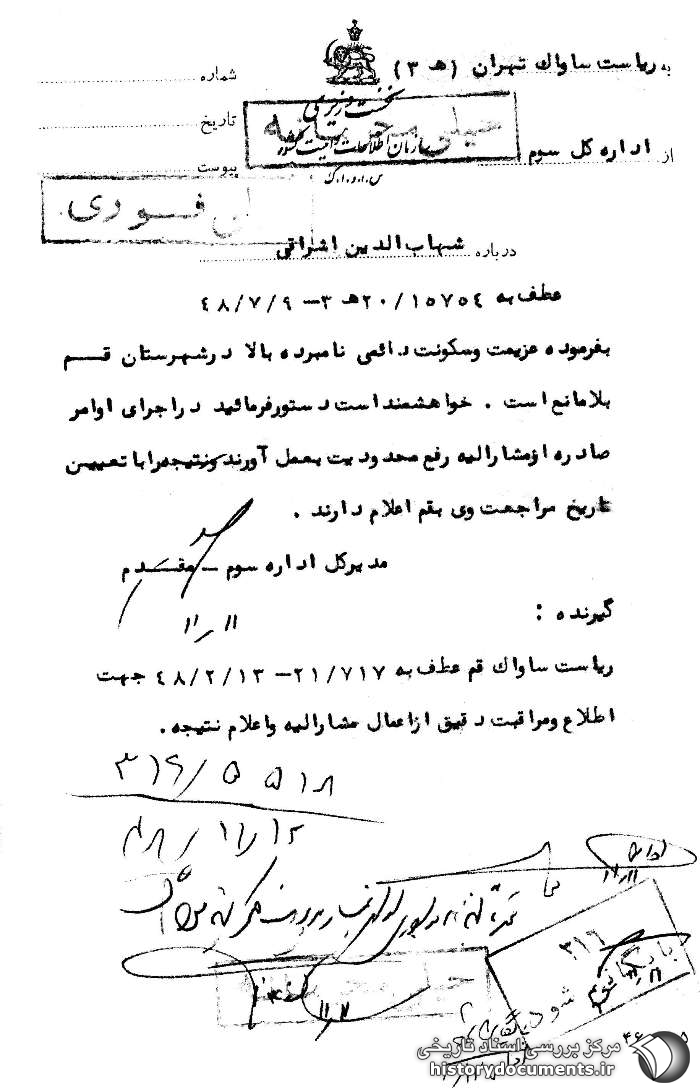 به ریاست ساواك تهران (هـ ۳)
شماره
نخست وزیری
تاریخ
خیلی محرمانه
سازمان اطلاعات و امنیت کشور
از اداره کل سوم
پیوست
س.ا.و.ا.ک
فوری
درباره شهاب الدین اشراقی
عطف به ۲۰/۱۵۷۵٤هـ ۳-۴۸/۷/۹
بفرموده عزیمت وسکونت دائمی نامبرده بالا درشهرستان قم
بلامانع است . خواهشمند است دستورفرمائید دراجرای اوامر
صادره ازمشارالیه رفع محدودیت بعمل آورند ونتیجه را با تعیین
تاریخ مراجعت وی بقم اعلام دارند .
مدیرکل اداره سوم ـ مقدم
۱۱ر۱۱
گیرنده :
ریاست ساواك قم عطف به ۲۱/۷۱۷-۴۸/۲/۱۳ جهت
اطلاع ومراقبت دقیق ازاعمال مشارالیه واعلام نتیجه .
۳۱۶/۵۵۱۸
۴۸/۱۱/۱۲
۳۱۶
بایگانی شود
خیلی محرمانه
مرکز بررسی اسناد تاریخی
historydocuments.ir